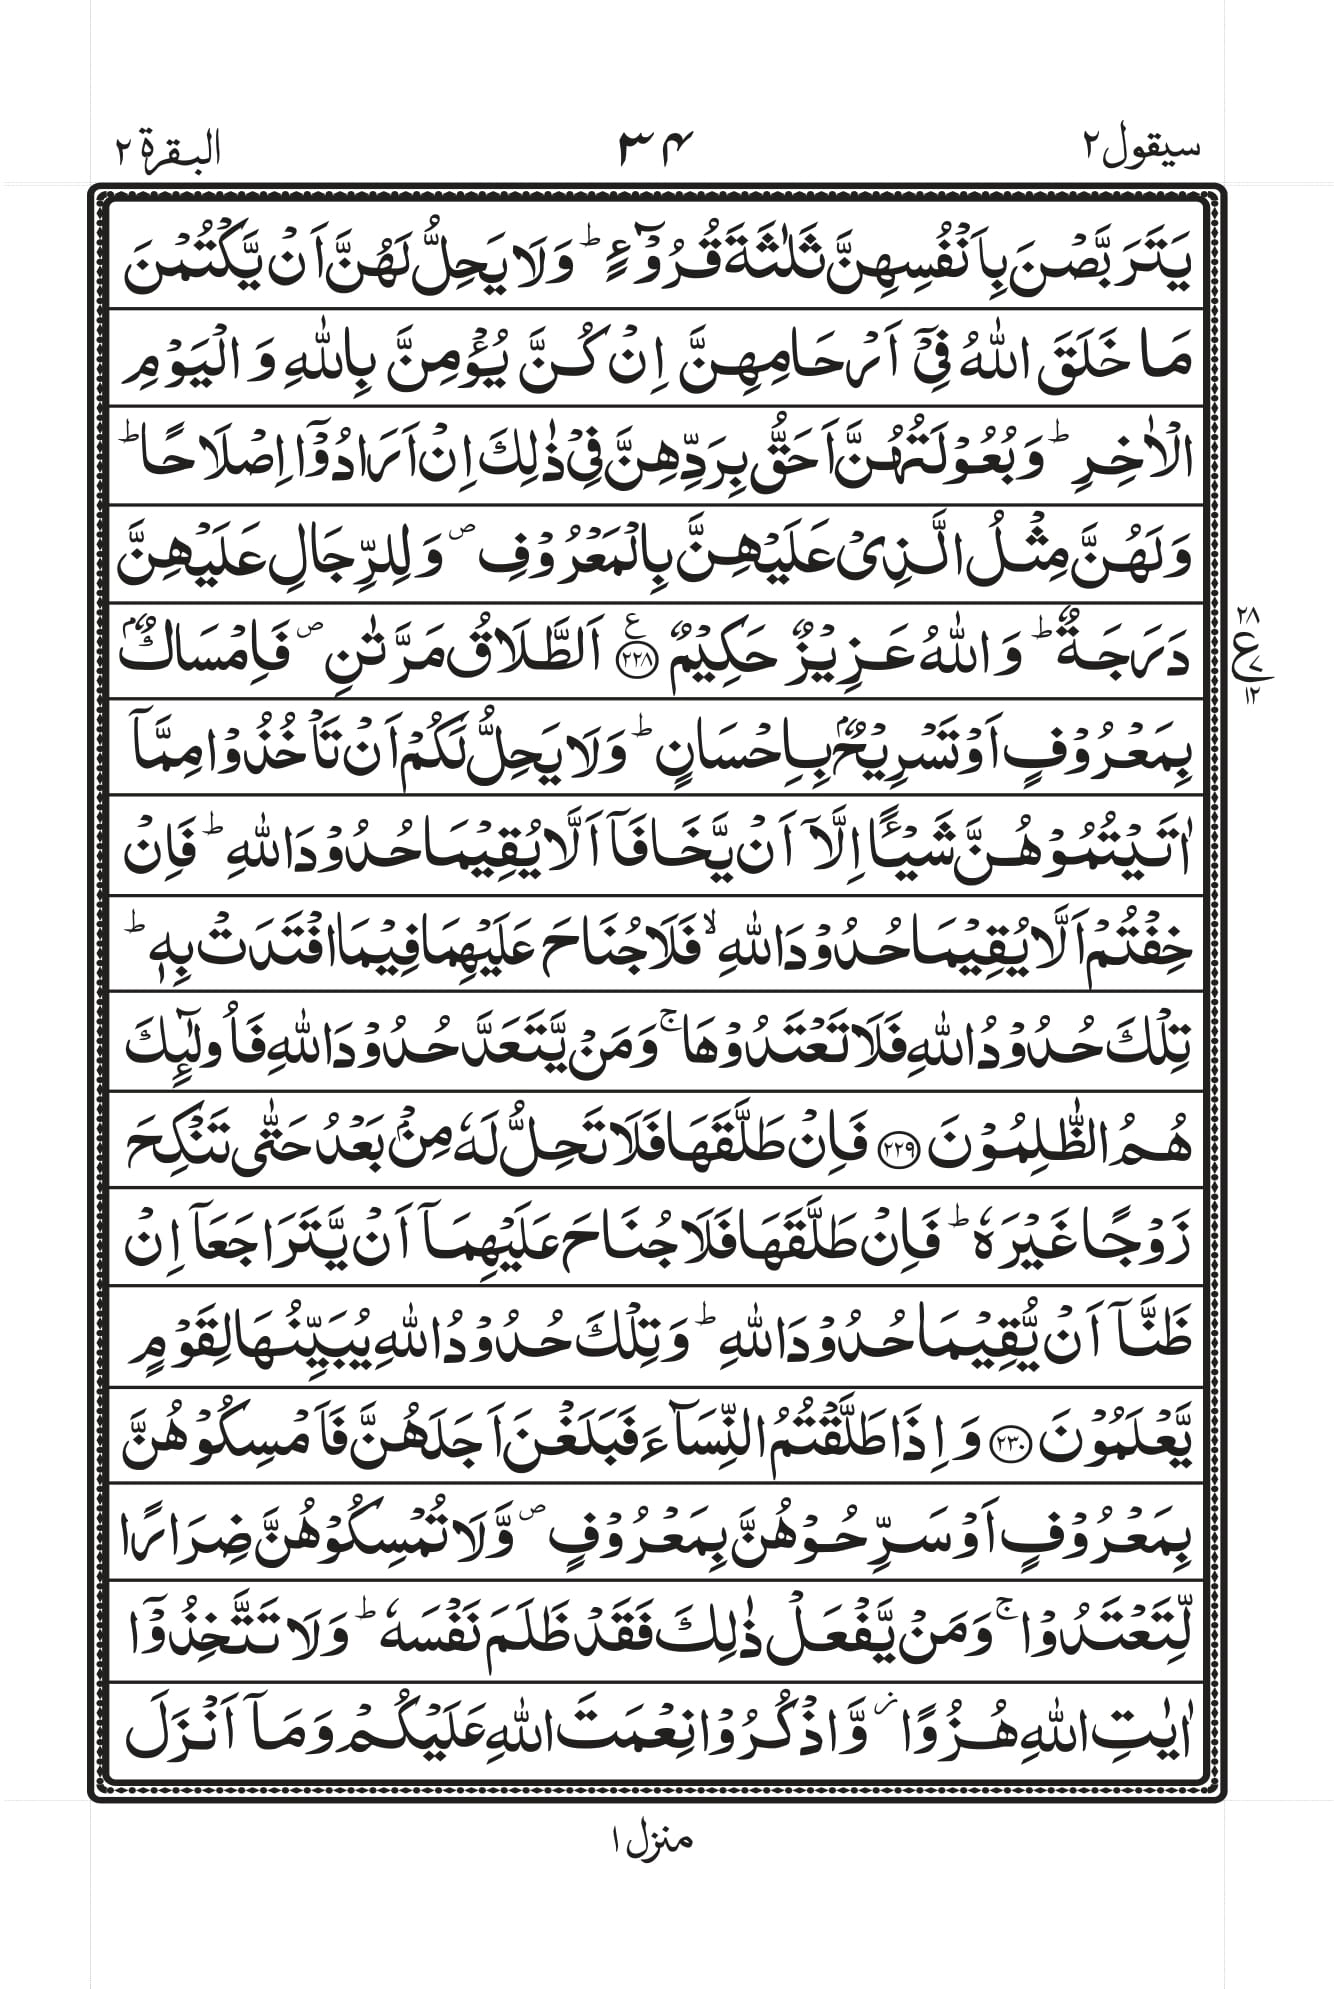 سيقول ٢
٣۴
البقرة ٢
يَتَرَبَّصْنَ بِاَنْفُسِهِنَّ ثَلٰثَةَ قُرُوْٓءٍ ؕ وَلَا يَحِلُّ لَهُنَّ اَنْ يَّكْتُمْنَ
مَا خَلَقَ اللّٰهُ فِيْٓ اَرْحَامِهِنَّ اِنْ كُنَّ يُؤْمِنَّ بِاللّٰهِ وَالْيَوْمِ
الْاٰخِرِ ؕ وَبُعُوْلَتُهُنَّ اَحَقُّ بِرَدِّهِنَّ فِيْ ذٰلِكَ اِنْ اَرَادُوْٓا اِصْلَاحًا ؕ
وَلَهُنَّ مِثْلُ الَّذِيْ عَلَيْهِنَّ بِالْمَعْرُوْفِ ص وَلِلرِّجَالِ عَلَيْهِنَّ
دَرَجَةٌ ؕ وَاللّٰهُ عَزِيْزٌ حَكِيْمٌ ع ٢٢٨ اَلطَّلَاقُ مَرَّتٰنِ ص فَاِمْسَاكٌۢ
٢٨
ع
٧
١٢
بِمَعْرُوْفٍ اَوْ تَسْرِيْحٌۢ بِاِحْسَانٍ ؕ وَلَا يَحِلُّ لَكُمْ اَنْ تَاْخُذُوْا مِمَّآ
اٰتَيْتُمُوْهُنَّ شَيْـًٔا اِلَّآ اَنْ يَّخَافَآ اَلَّا يُقِيْمَا حُدُوْدَ اللّٰهِ ؕ فَاِنْ
خِفْتُمْ اَلَّا يُقِيْمَا حُدُوْدَ اللّٰهِ ۙ فَلَا جُنَاحَ عَلَيْهِمَا فِيْمَا افْتَدَتْ بِهٖ ؕ
تِلْكَ حُدُوْدُ اللّٰهِ فَلَا تَعْتَدُوْهَا ۚ وَمَنْ يَّتَعَدَّ حُدُوْدَ اللّٰهِ فَاُولٰٓئِكَ
هُمُ الظّٰلِمُوْنَ ٢٢٩ فَاِنْ طَلَّقَهَا فَلَا تَحِلُّ لَهٗ مِنْۢ بَعْدُ حَتّٰى تَنْكِحَ
زَوْجًا غَيْرَهٗ ؕ فَاِنْ طَلَّقَهَا فَلَا جُنَاحَ عَلَيْهِمَآ اَنْ يَّتَرَاجَعَآ اِنْ
ظَنَّآ اَنْ يُّقِيْمَا حُدُوْدَ اللّٰهِ ؕ وَتِلْكَ حُدُوْدُ اللّٰهِ يُبَيِّنُهَا لِقَوْمٍ
يَّعْلَمُوْنَ ٢٣٠ وَاِذَا طَلَّقْتُمُ النِّسَآءَ فَبَلَغْنَ اَجَلَهُنَّ فَاَمْسِكُوْهُنَّ
بِمَعْرُوْفٍ اَوْ سَرِّحُوْهُنَّ بِمَعْرُوْفٍ ص وَّلَا تُمْسِكُوْهُنَّ ضِرَارًا
لِّتَعْتَدُوْا ۚ وَمَنْ يَّفْعَلْ ذٰلِكَ فَقَدْ ظَلَمَ نَفْسَهٗ ؕ وَلَا تَتَّخِذُوْٓا
اٰيٰتِ اللّٰهِ هُزُوًا ز وَّاذْكُرُوْا نِعْمَتَ اللّٰهِ عَلَيْكُمْ وَمَآ اَنْزَلَ
منزل ١